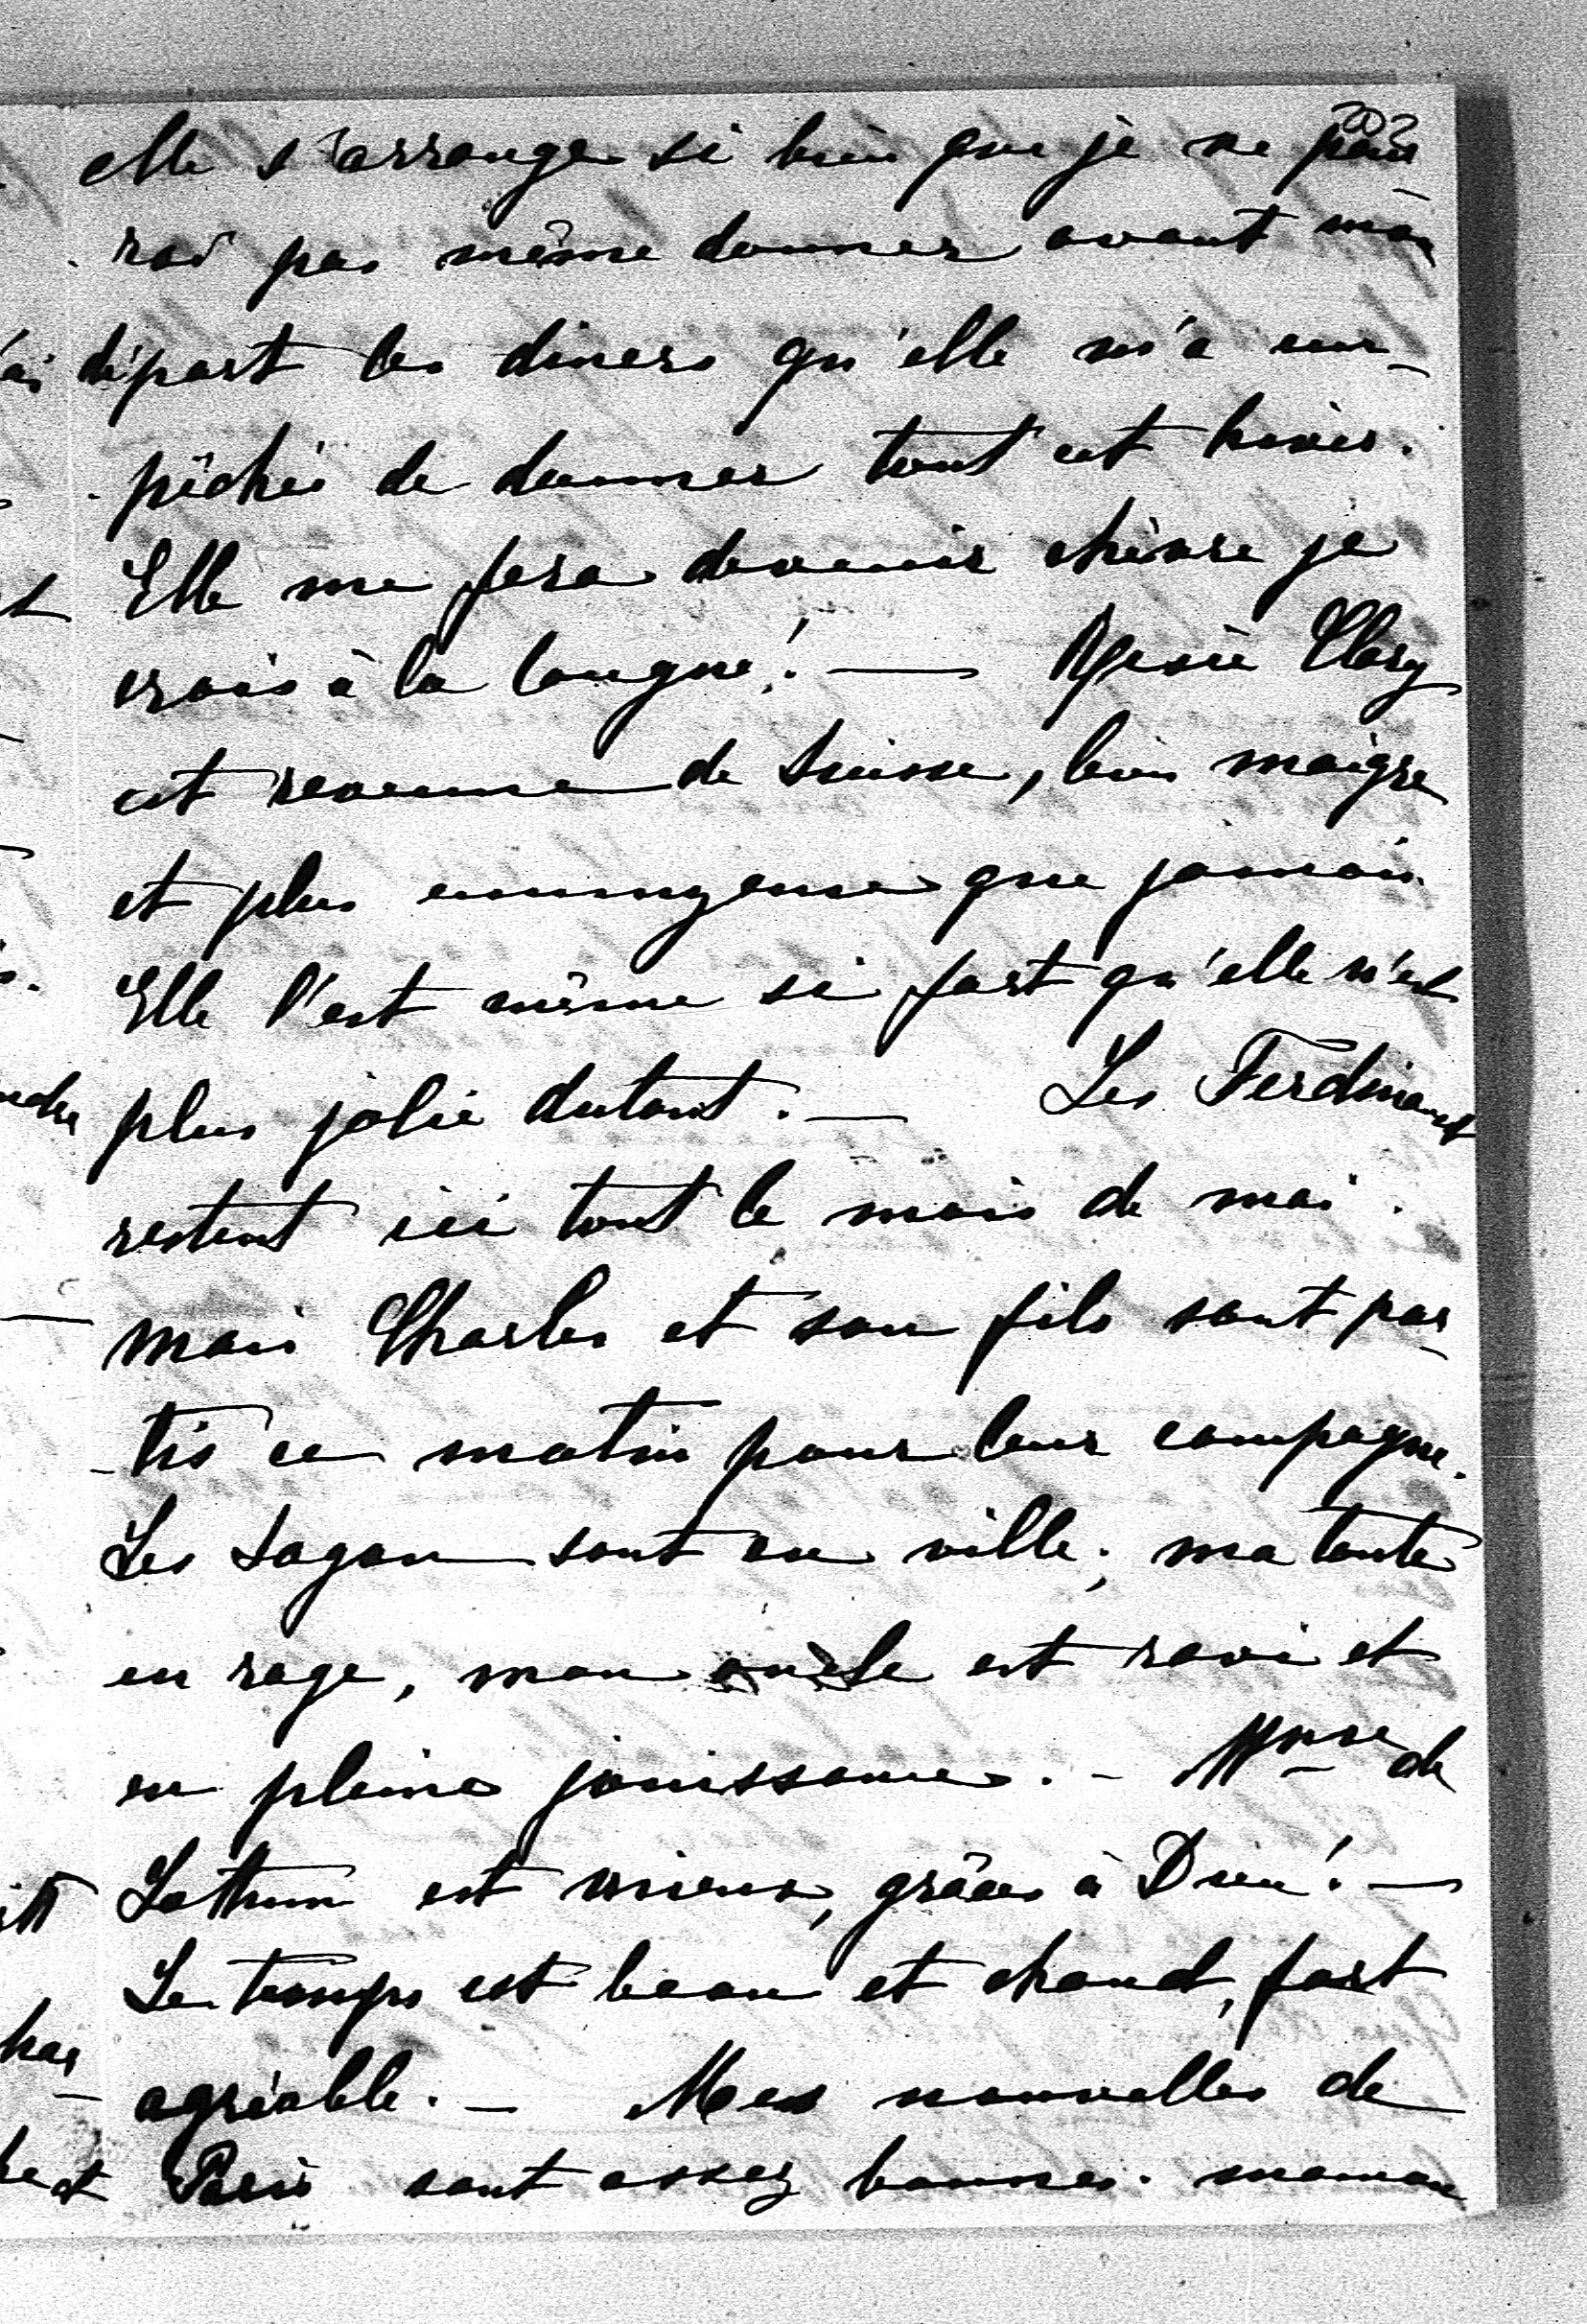 202
elle s'arrange si bien que je ne pour
rai pas même donner avant mon
départ les diners qu'elle m'a em-
pêchée de donner tout cet hiver.
Elle me fera devenir chèvre je
crois à la longue! — Clary
est revenue de Suisse, bien maigre
et plus ennuyeuse que jamais
Elle l'est même si fort qu'elle n'est
plus jolie dutout. — Les Ferdinand
restent ici tout le mois de mai.
mais Charles et son fils sont par-
-tis ce matin pour leur campagne.
Les Sagan sont en ville; ma tante
en rage, mon oncle est ravi et
en pleine jouissance. - Mme de
est mieux, grâces à Dieu! —
Le temps est beau et chaud, fort
agréable. — Mes nouvelles de
Paris sont assez bonnes. maman